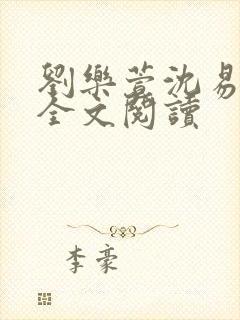 劉樂萱沈易
全文閱讀
李豪